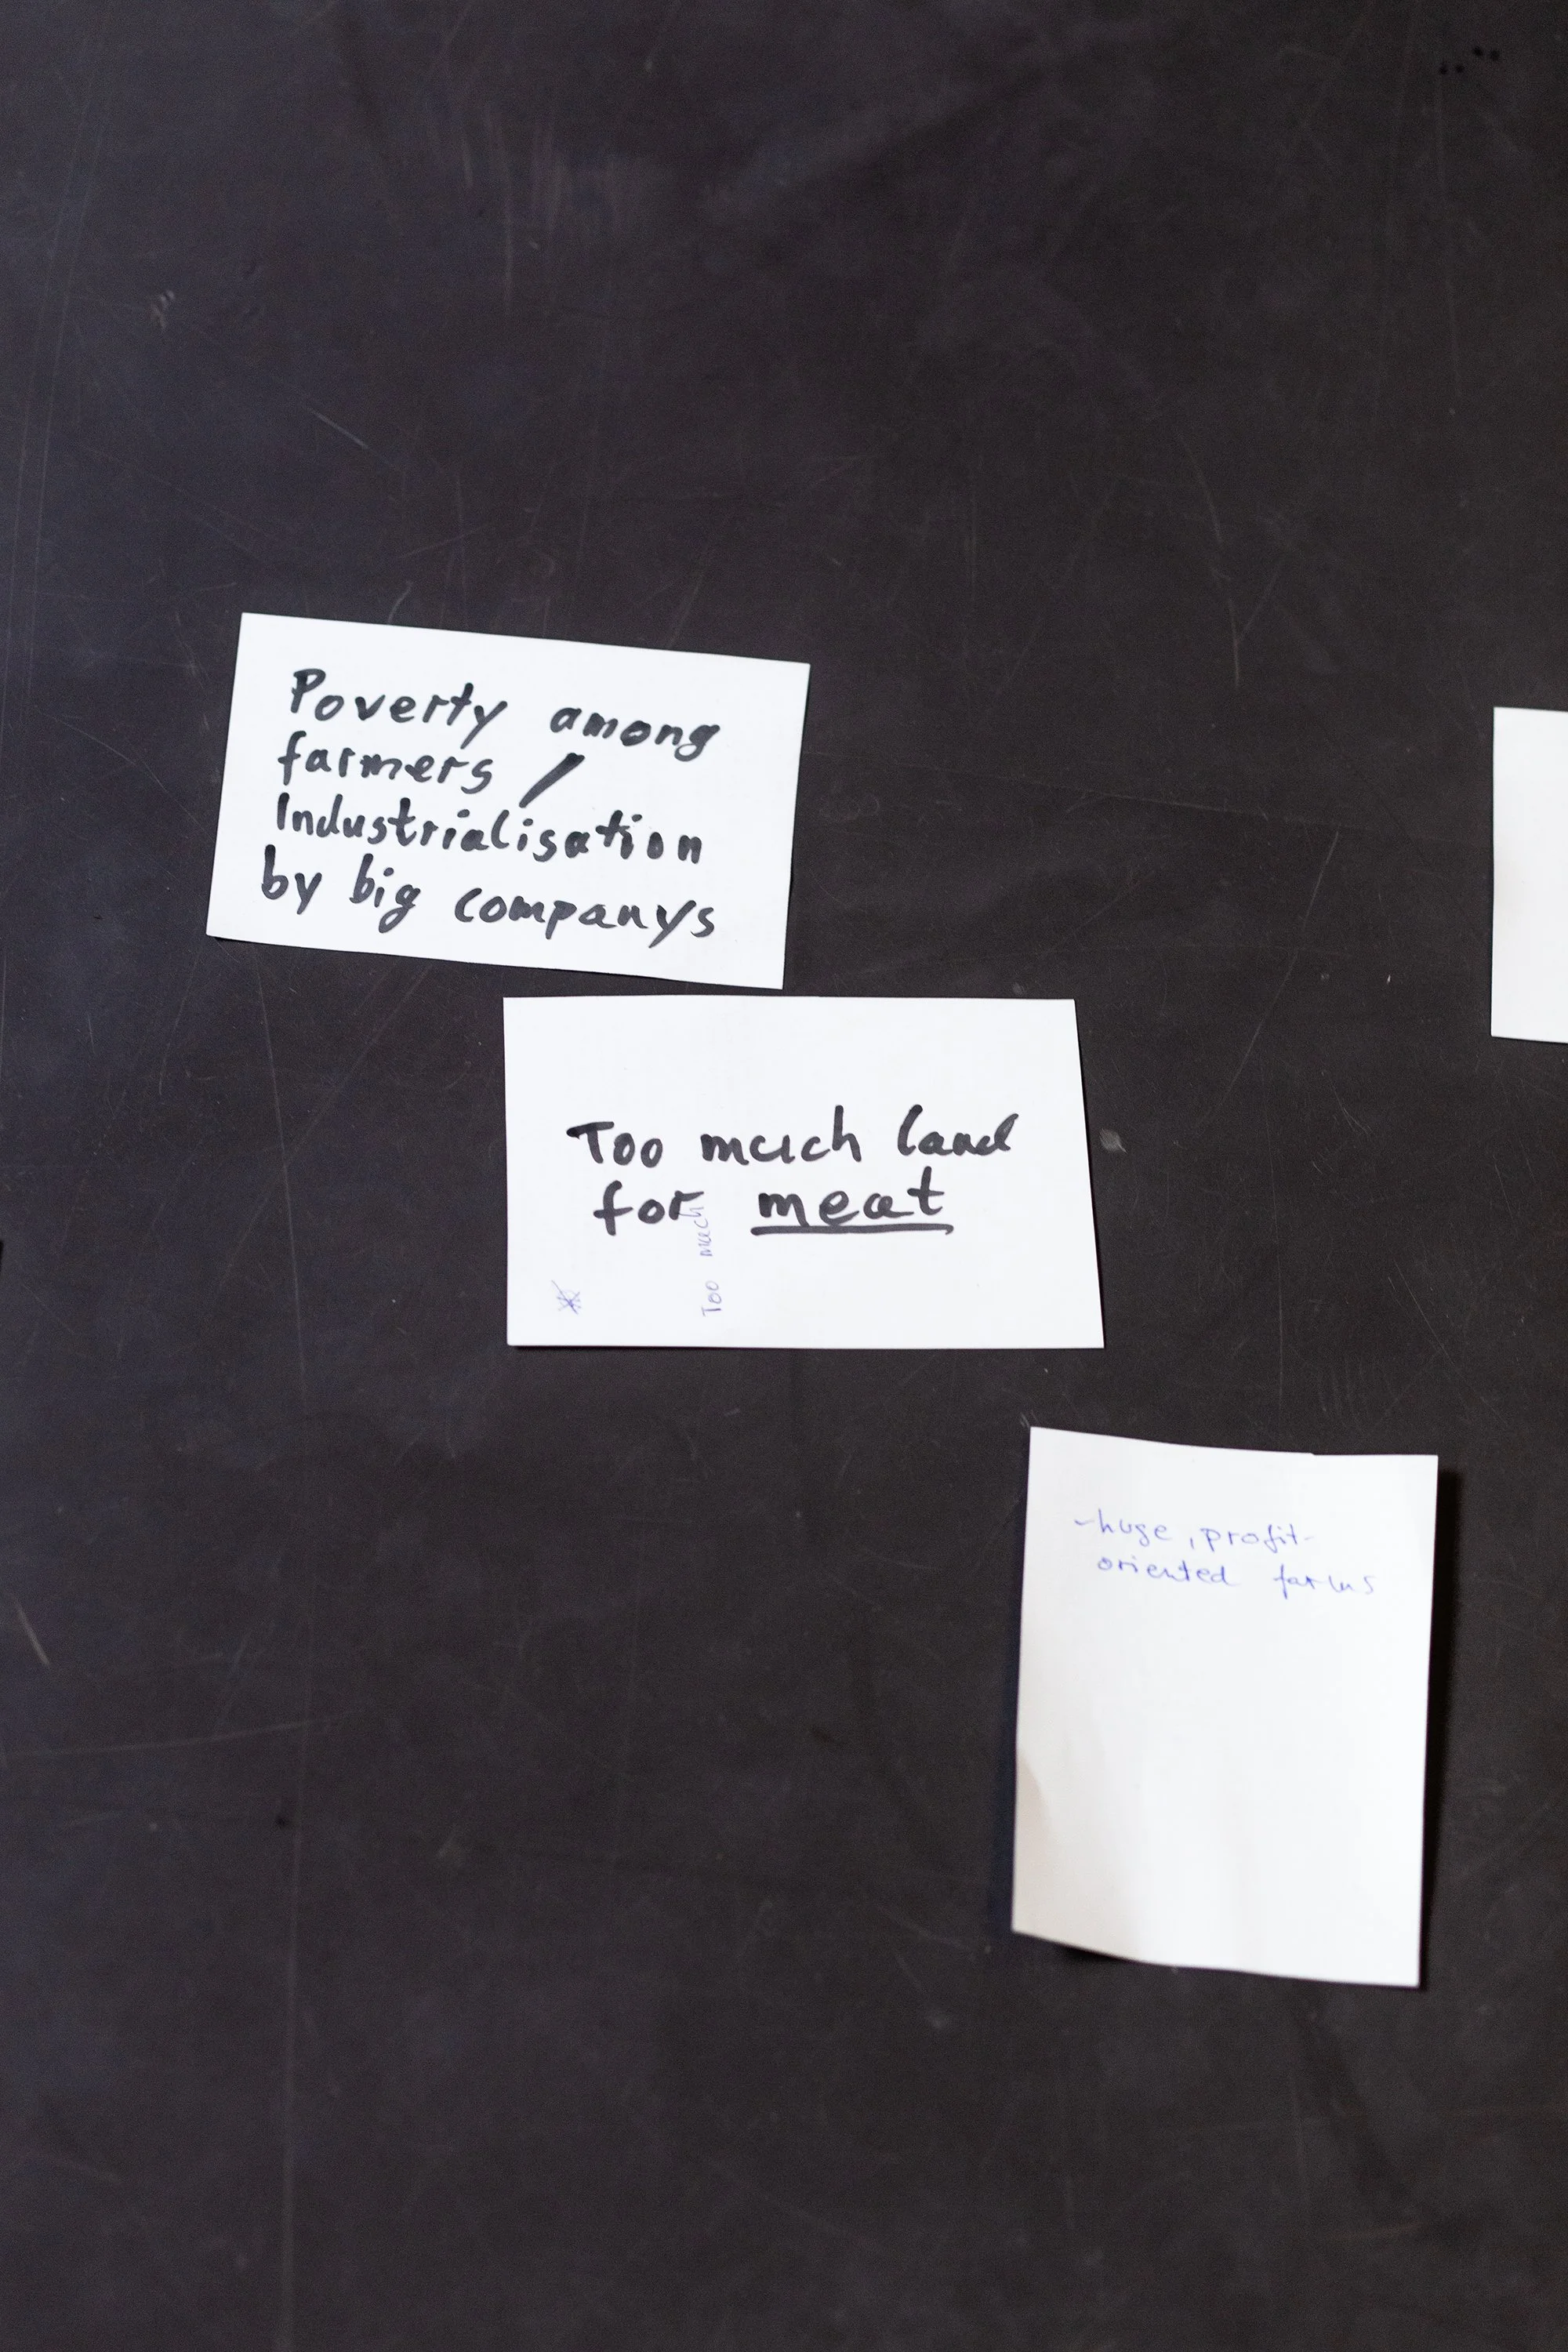 Poverty among
farmers /
Industrialisation
by big companys
Too much land
for meat
Too much
-huge, profit-
oriented farms